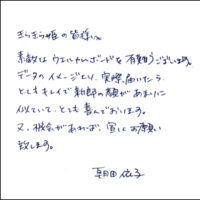 きらきら姫の皆様へ
素敵なウエルカムボードを有難うございます。
データのイメージより、実際届いたら
とてもキレイで新郎の顔があまりに
似ていて、とても喜んでおります。
又、機会があれば、宜しくお願い
致します。